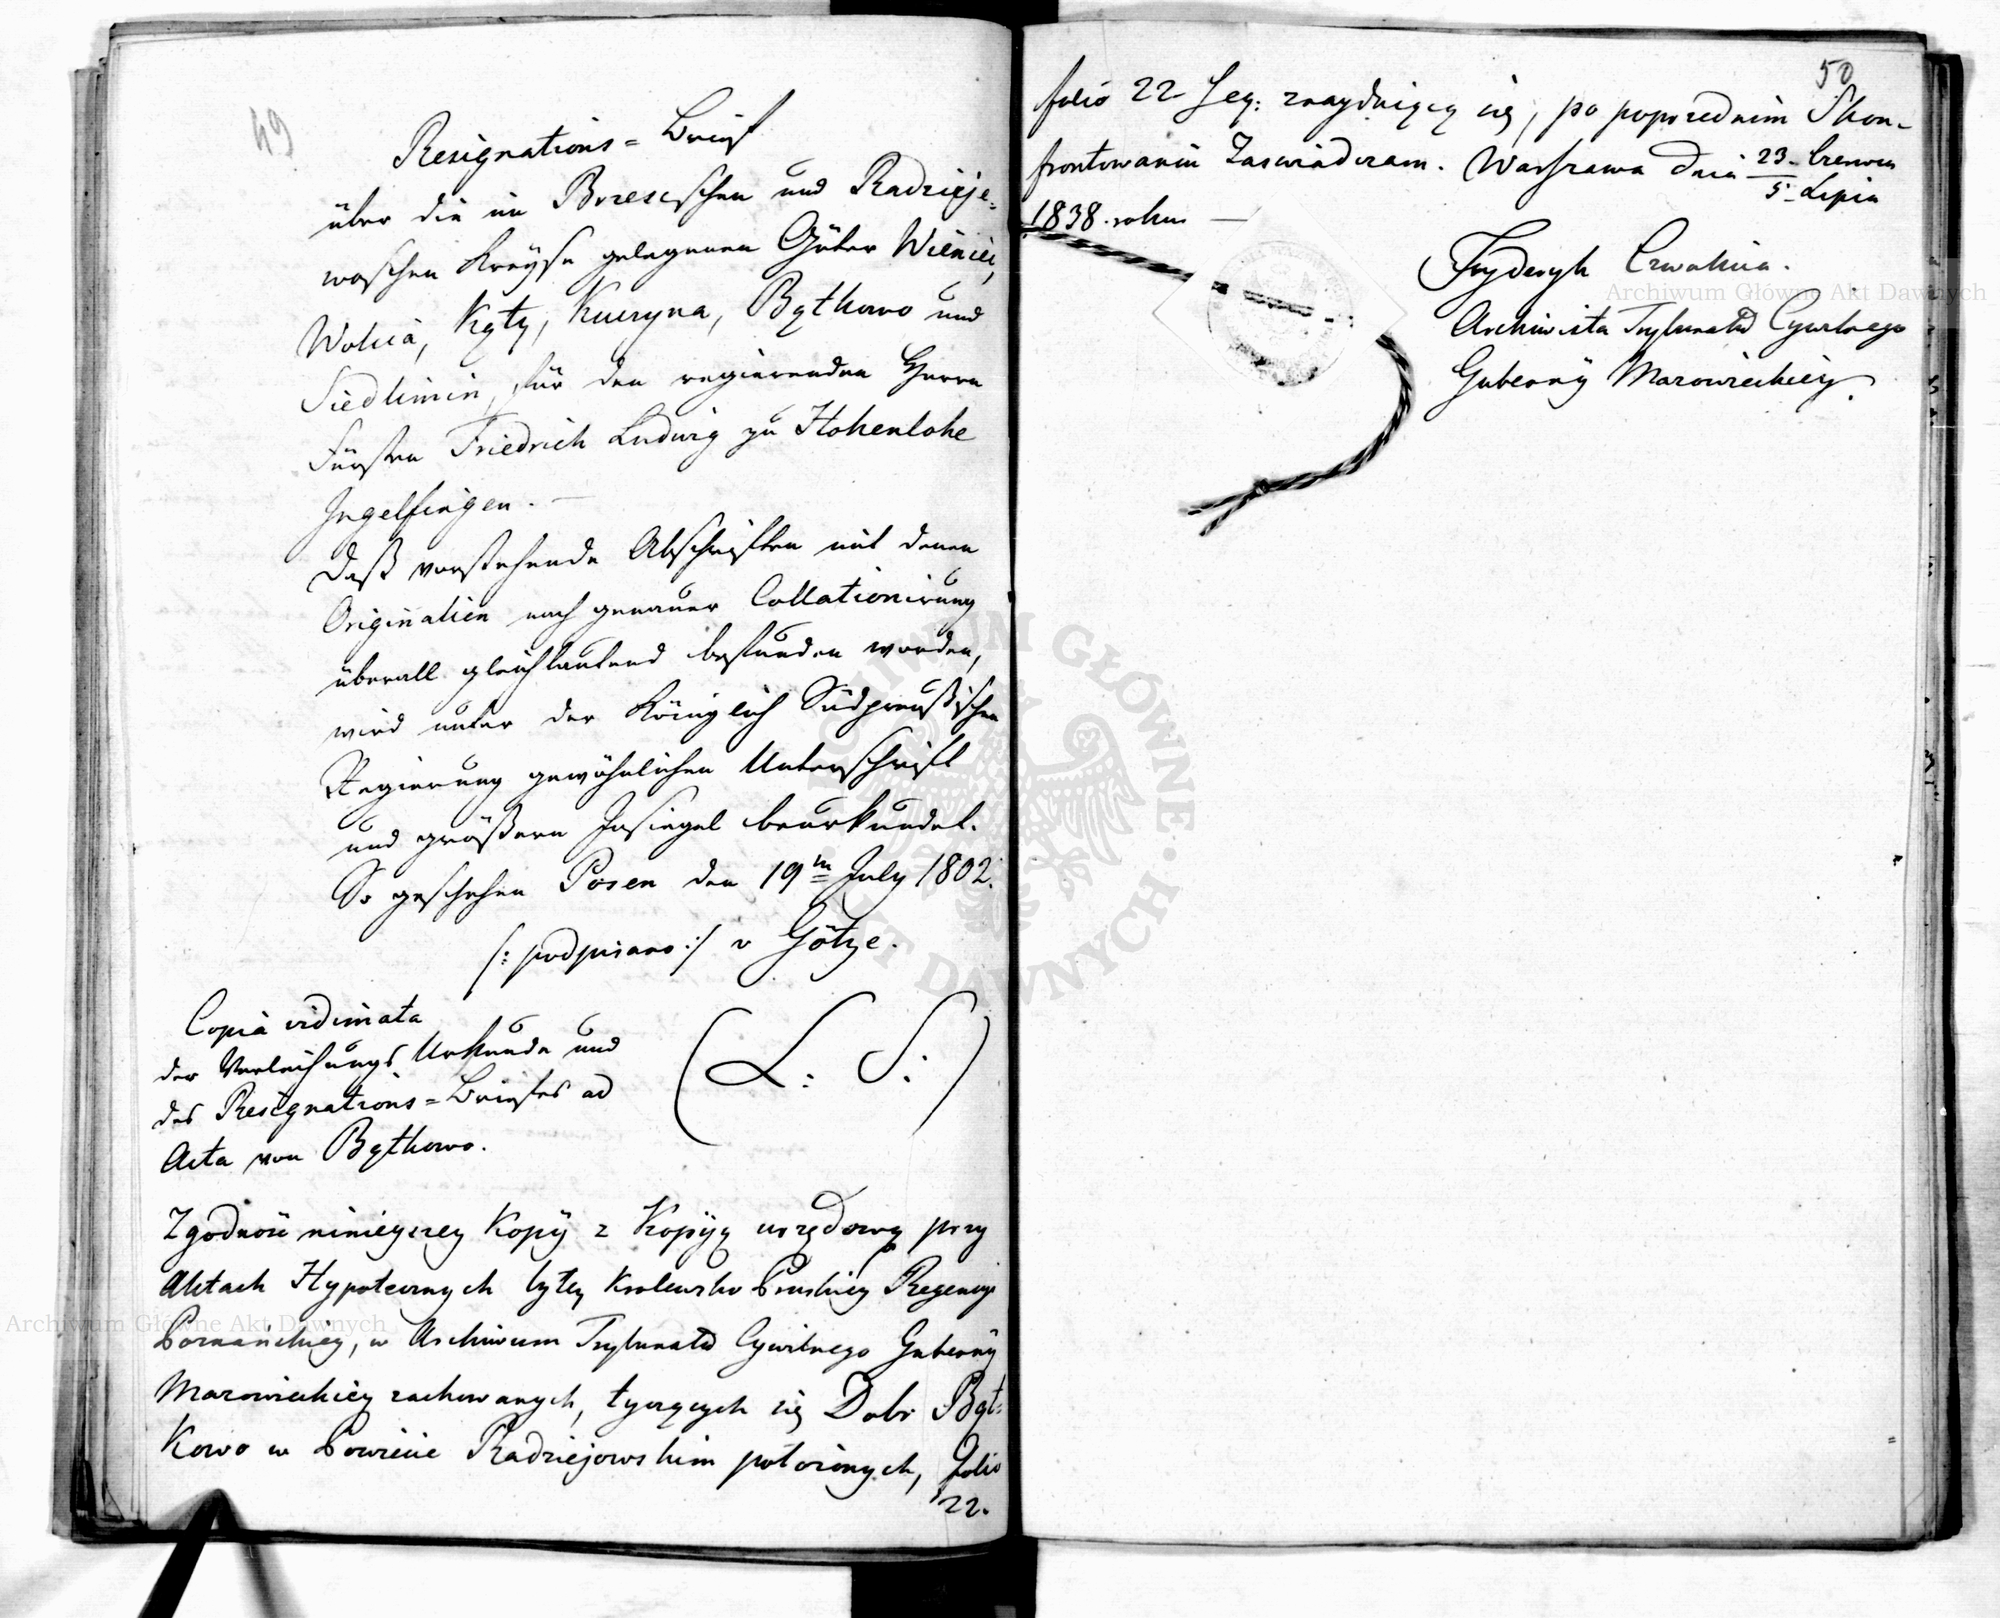 49
Resignations = Brief
über die im Brzescschen und Radzieje=
woschen Kreyse gelegenen Güter Wieniec,
Wolica, Kąty, Kuczyna, Bątkowo und
Siedlimin, für den regierenden Herrn
Fürsten Friedrich Ludwig zu Hohenlohe
Ingelfingen. —
Daß vorstehende Abschriften mit denen
Originalien nach genauer Collationirung
überall gleichlautend befunden worden,
wird unter der Königlich Südpreußischen
Regierung gewöhnlichen Unterschrift
und größern Insiegel beurkundet.
So geschehen Posen den 19ten July 1802.
/: podpisano :/ v Götze.
Copia vidimata
der Verleihungs Urkunde und
des Resignations = Briefes ad
Acta von Bątkowo.
(L: S:)
Zgodność ninieyszey Kopij z Kopiją urzędową przy
Aktach Hypotecznych byłey Krolewsko Pruskiey Regencyi
Poznańskiey, w Archiwum Trybunału Cywilnego Gubernij
Mazowieckiey zachowanych, tyczących się Dobr Bąt=
kowo w Powiecie Radziejowskim położonych, folio
22.
50
folio 22 Seq: znayduiącą się, po poprzedniem Skon-
frontowaniu Zaswiadczam. Warszawa dnia 23 Czerwca
5 Lipca
1838. roku —
Fryderyk
Archiwista Trybunału Cywilnego
Gubernij Mazowieckiey.
Archiwum Główne Akt Dawnych
Archiwum Główne Akt Dawnych
ARCHIWUM GŁÓWNE · AKT DAWNYCH ·